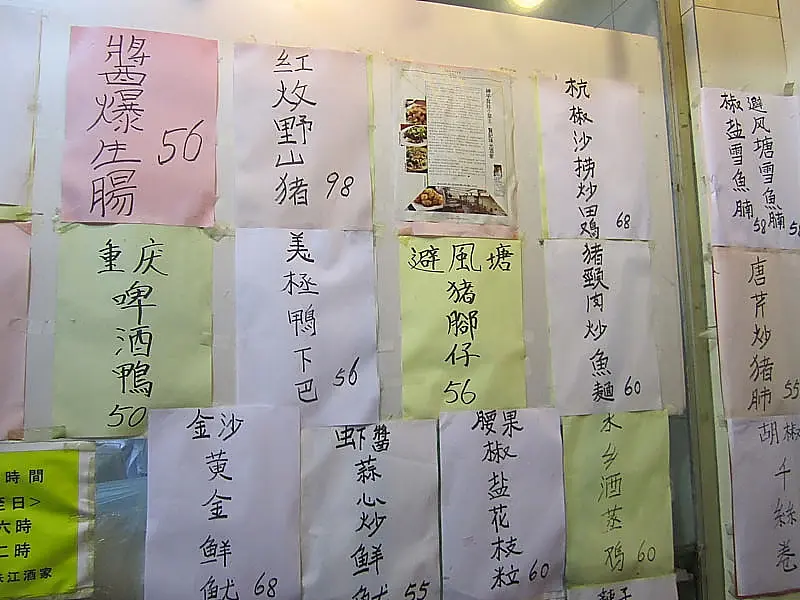 醬爆生腸 56
紅炆野山猪 98
杭椒沙捞炒田鸡 68
椒盐雪魚腩 58
避风塘雪魚腩 58
重庆
啤酒鴨 50
美極鴨下巴 56
避風塘
猪腳仔
56
猪頸肉炒魚麵 60
唐芹炒猪肺 55
金沙
黄金鲜魷 68
虾醬
蒜心炒鲜魷 55
腰果
椒盐花枝粒 60
水乡酒蒸鸡 60
胡椒
千絲卷
時間
至日>
六時
二時
珠江酒家